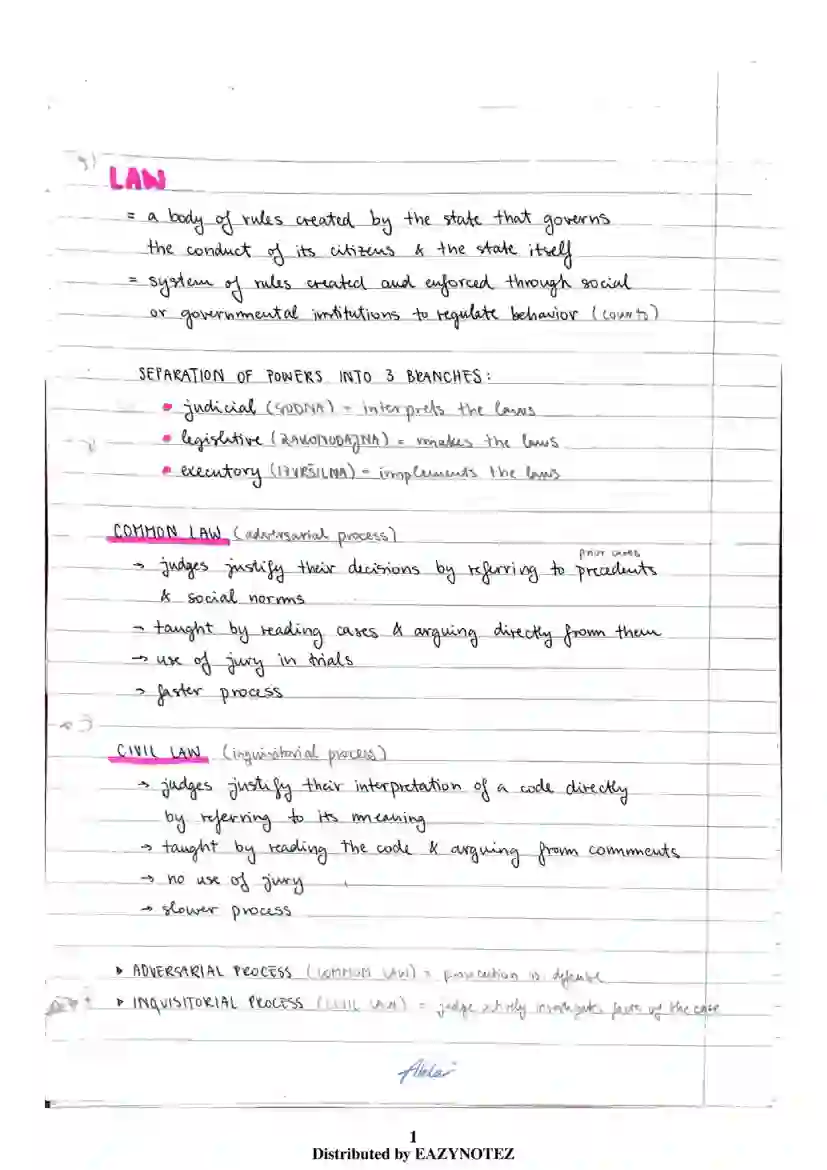 LAW
= a body of rules created by the state that governs
the conduct of its citizens & the state itself
= system of rules created and enforced through social
or governmental institutions to regulate behavior (courts)
SEPARATION OF POWERS INTO 3 BRANCHES:
• judicial (SODNA) = interprets the laws
• legislative (ZAKONODAJNA) = makes the laws
• executory (IZVRŠILNA) = implements the laws
COMMON LAW (adversarial process)
prior cases
→ judges justify their decisions by referring to precedents
& social norms
→ taught by reading cases & arguing directly from them
→ use of jury in trials
→ faster process
CIVIL LAW (inquisitorial process)
→ judges justify their interpretation of a code directly
by referring to its meaning
→ taught by reading the code & arguing from comments
→ no use of jury
→ slower process
▸ ADVERSARIAL PROCESS (COMMON LAW) = prosecution vs defense
▸ INQUISITORIAL PROCESS (CIVIL LAW) = judge actively investigates facts of the case
1
Distributed by EAZYNOTEZ